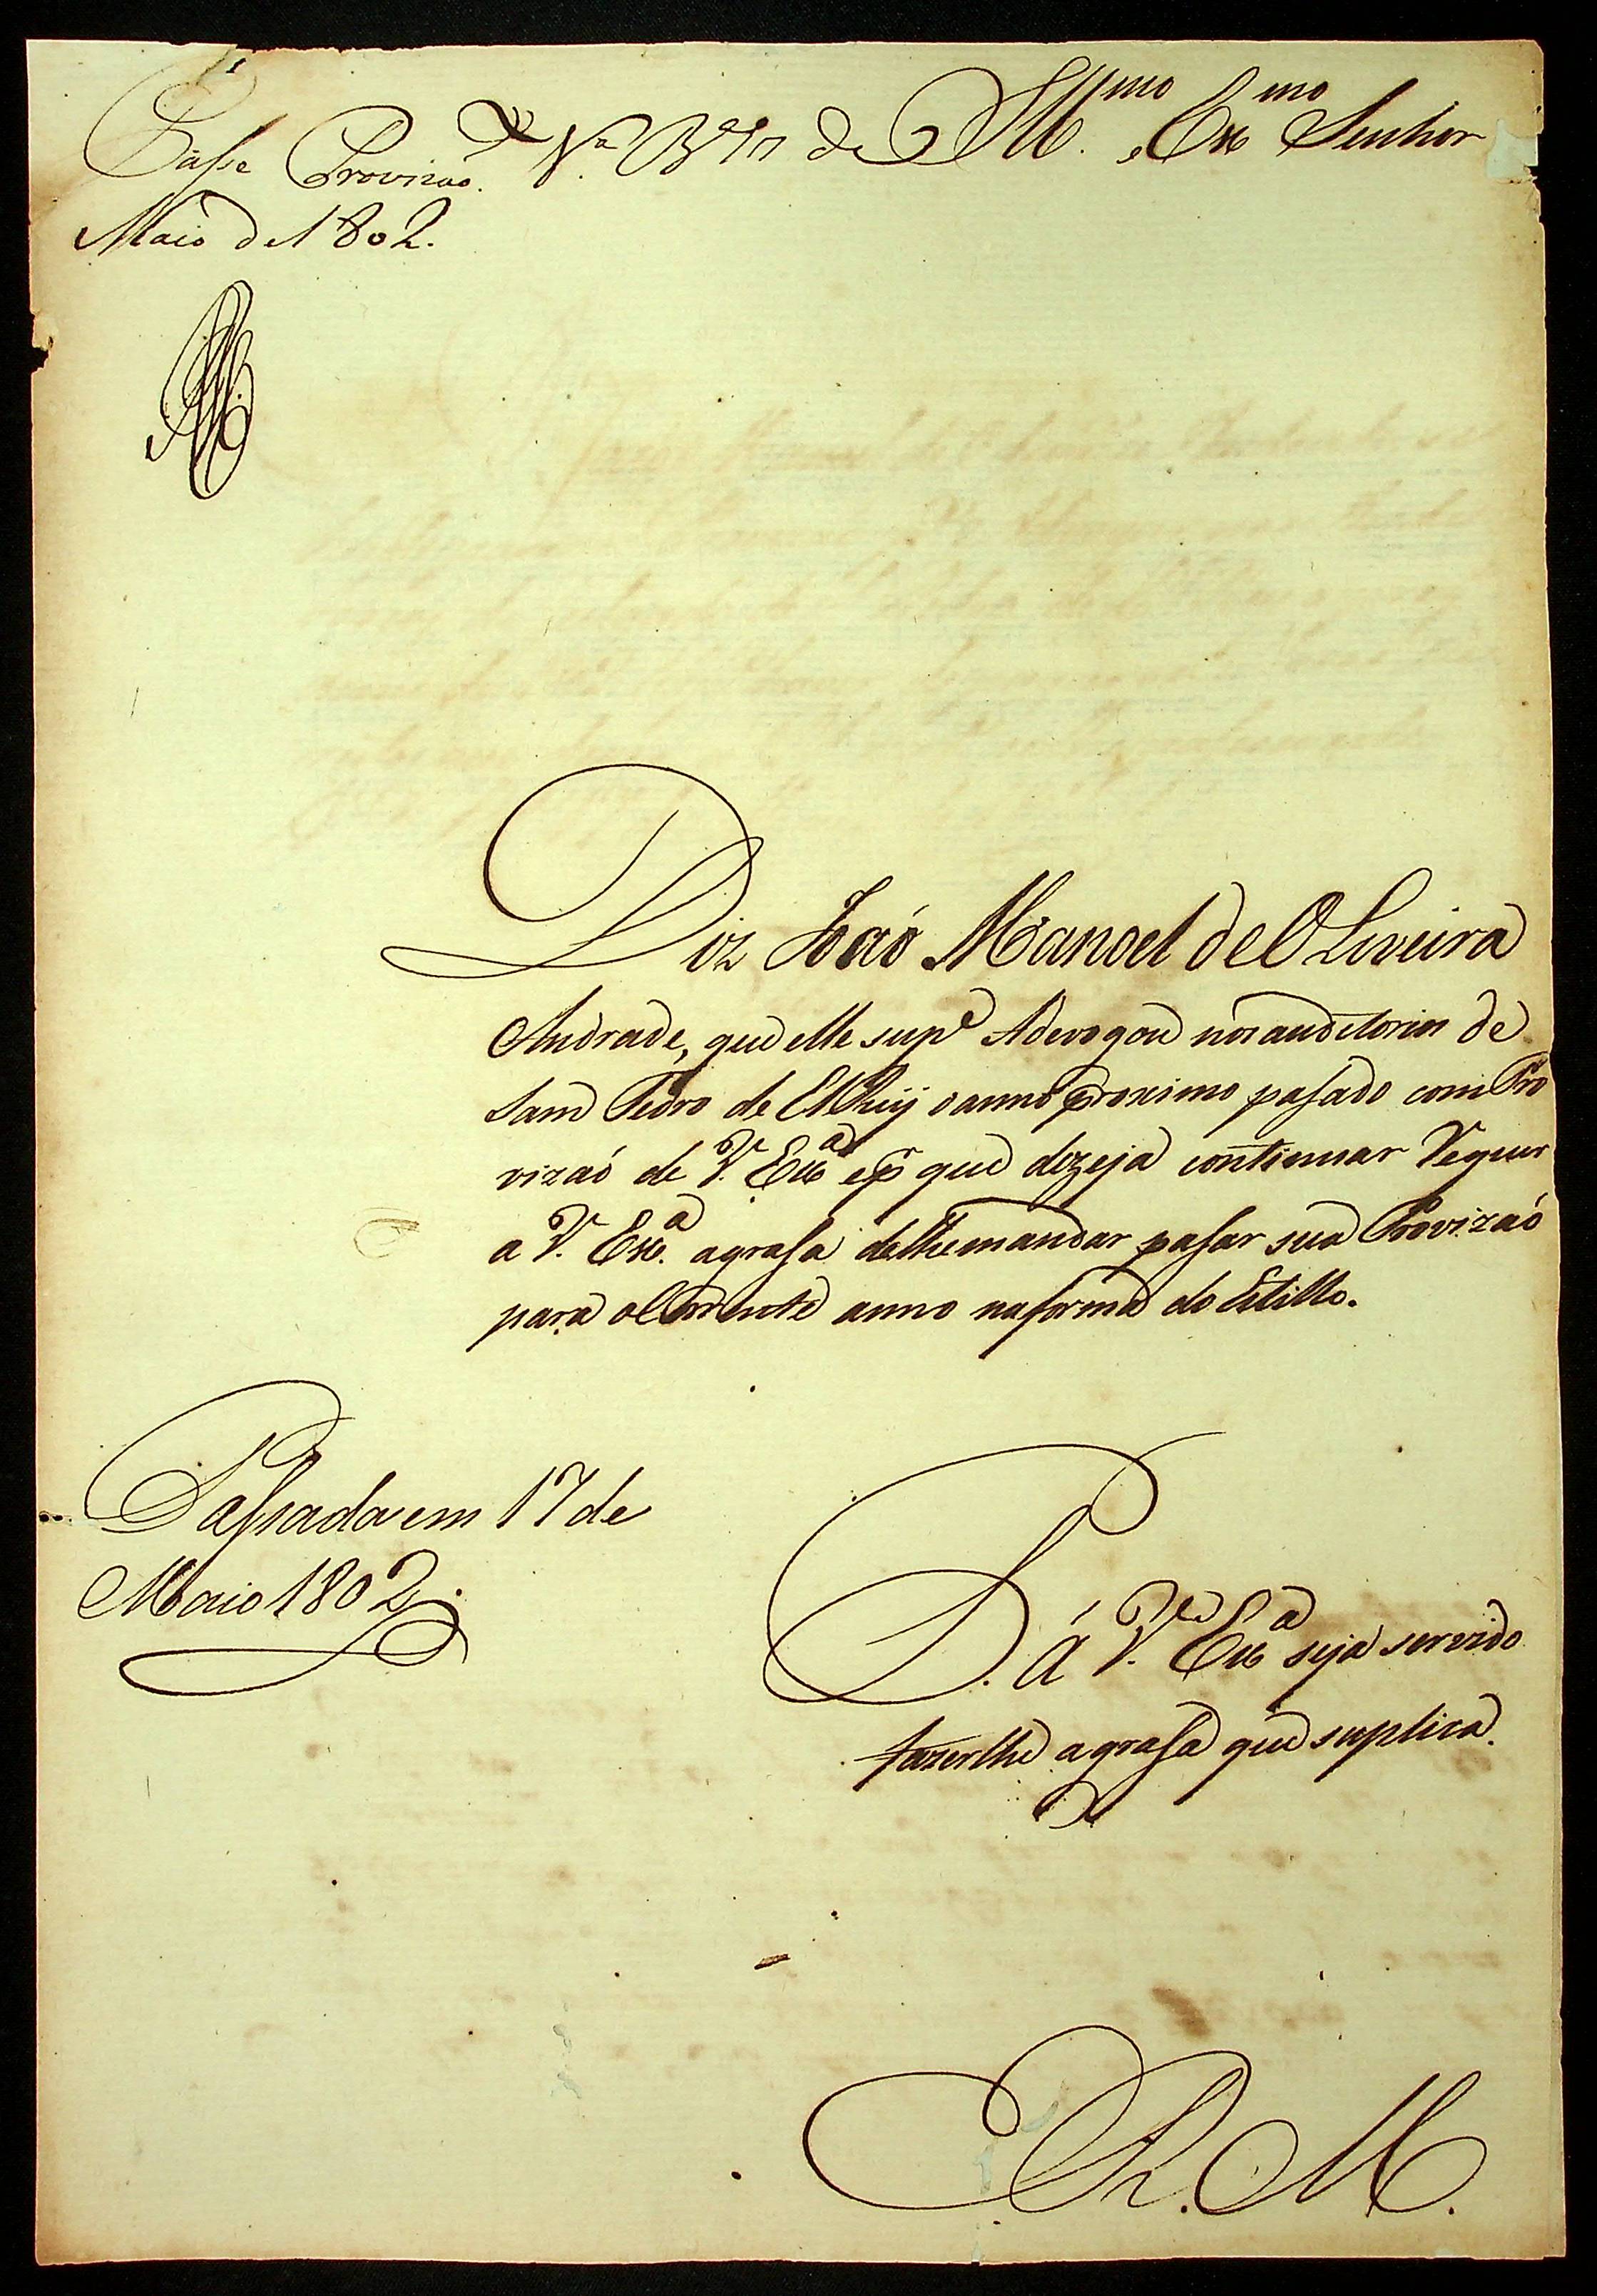 Ill.mo e Ex.mo Senhor
Passe Provizaó. V.a B.a 17 de
Maio de 1802.
Diz Joaó Manoel de OLiveira
Andrade, que elle sup.e Adevogou nos auditorios de
Sam Pedro de ElReij o anno proximo pasado com Pro
vizaó de V. Ex.a e p que dezeja continuar Requer
a V. Ex.a a grasa de lhe mandar pasar sua Provizaó
para o Corrente anno na forma do Estillo.
Passada em 17 de
Maio 1802
P. á V. Ex.a seja servido
fazer lhe a grasa que suplica.
E. R. M.